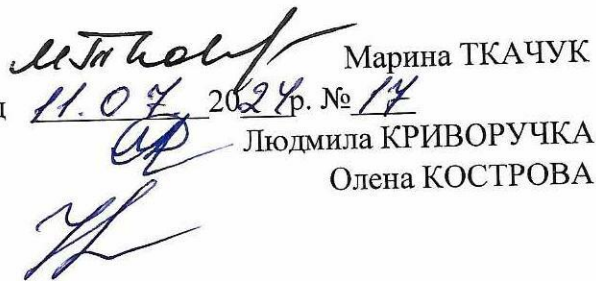 Марина ТКАЧУК
11.07 2024р. № 17
Людмила КРИВОРУЧКА
Олена КОСТРОВА